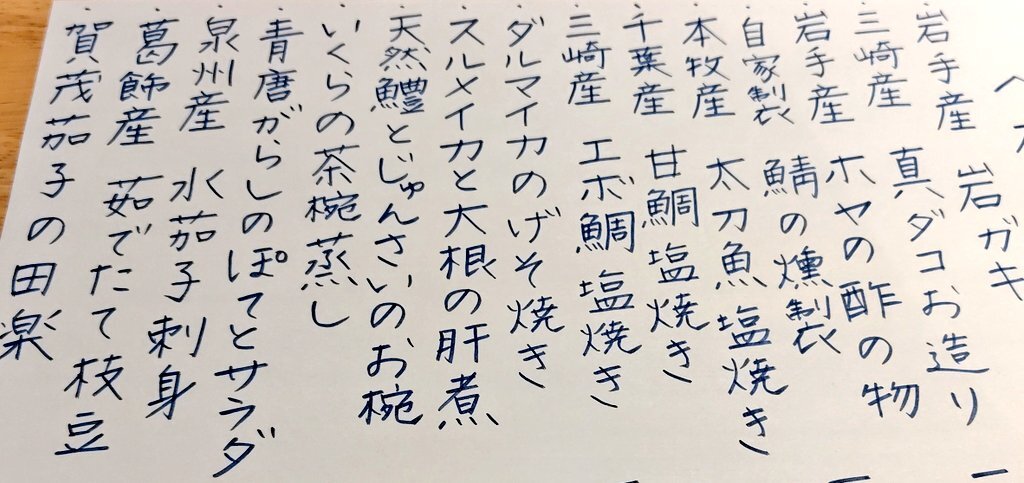 ・岩手産 岩ガキ
・三崎産 真ダコお造り
・岩手産 ホヤの酢の物
・自家製 鯖の燻製
・本牧産 太刀魚塩焼き
・千葉産 甘鯛塩焼き
・三崎産 エボ鯛塩焼き
・ダルマイカのげそ焼き
・スルメイカと大根の肝煮
・天然鱧とじゅんさいのお椀
・いくらの茶椀蒸し
・青唐がらしのぽてとサラダ
・泉州産 水茄子刺身
・葛飾産 茹でたて枝豆
・賀茂茄子の田楽